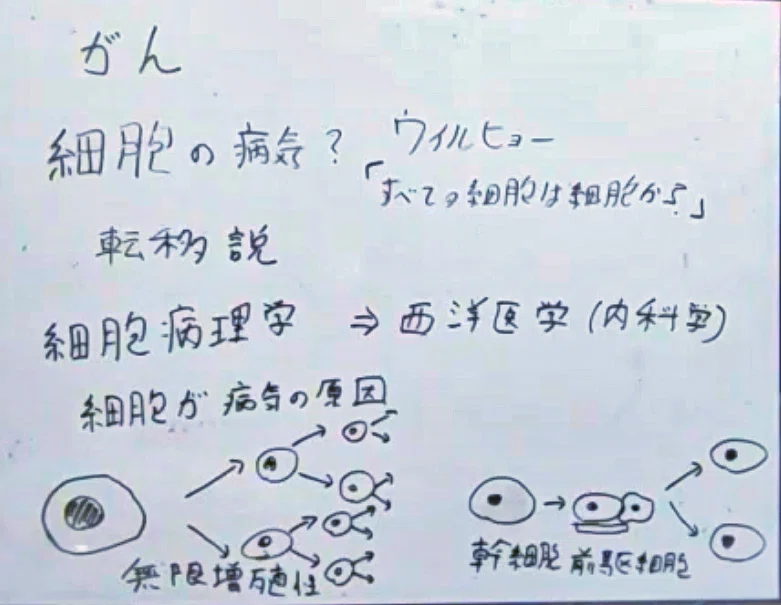 がん
細胞の病気? ウイルヒョー
「すべての細胞は細胞から」
転移説
細胞病理学 ⇒ 西洋医学(内科学)
細胞が病気の原因
無限増殖性
幹細胞 前駆細胞